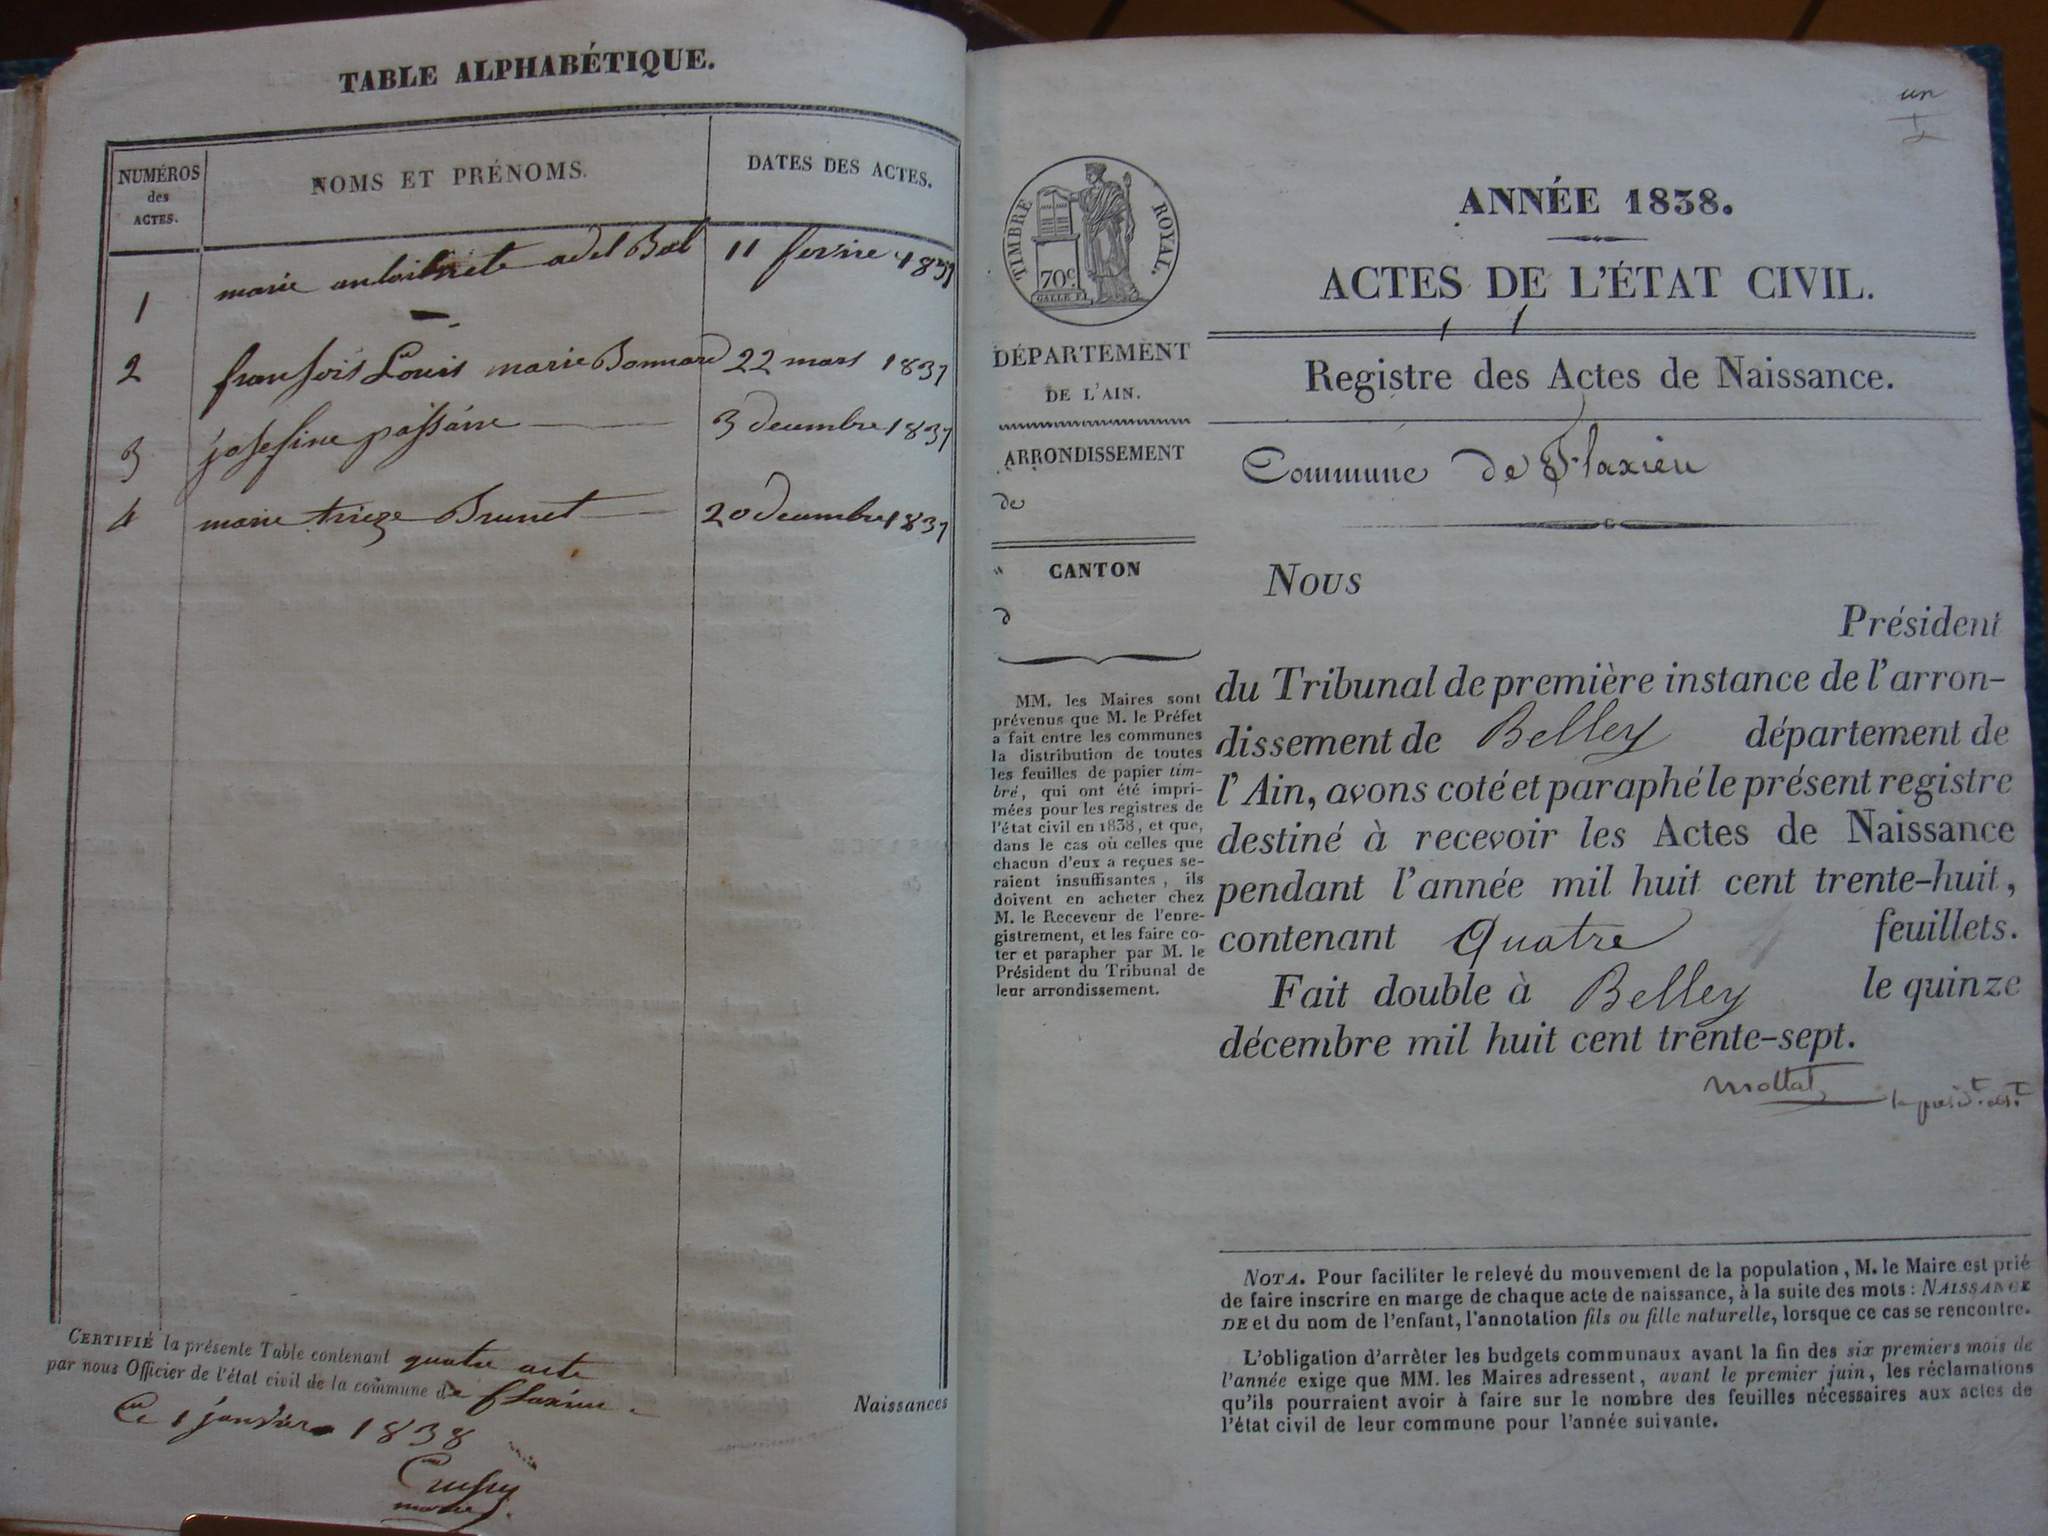 TABLE ALPHABÉTIQUE.
NUMÉROS des ACTES. NOMS ET PRÉNOMS. DATES DES ACTES.
1 marie antoinete adel Bal 11 fevrie 1837
2 fransois Louis marie Bonnard 22 mars 1837
3 josefine passain 3 decembre 1837
4 marie trieze Brunet 20 decembre 1837
CERTIFIÉ la présente Table contenant quatre acte
par nous Officier de l'état civil de la commune de flaxieu
Ce 1 janvier 1838
Naissances
un
1
TIMBRE ROYAL.
70c.
GALLE F.
DÉPARTEMENT
DE L'AIN.
ARRONDISSEMENT
de
CANTON
d
MM. les Maires sont
prévenus que M. le Préfet
a fait entre les communes
la distribution de toutes
les feuilles de papier tim-
bré, qui ont été impri-
mées pour les registres de
l'état civil en 1838, et que,
dans le cas où celles que
chacun d'eux a reçues se-
raient insuffisantes, ils
doivent en acheter chez
M. le Receveur de l'enre-
gistrement, et les faire co-
ter et parapher par M. le
Président du Tribunal de
leur arrondissement.
ANNÉE 1838.
ACTES DE L'ÉTAT CIVIL.
Registre des Actes de Naissance.
Commune de Flaxieu
Nous
Président
du Tribunal de première instance de l'arron-
dissement de Belley département de
l'Ain, avons coté et paraphé le présent registre
destiné à recevoir les Actes de Naissance
pendant l'année mil huit cent trente-huit,
contenant Quatre feuillets.
Fait double à Belley le quinze
décembre mil huit cent trente-sept.
Mottat
NOTA. Pour faciliter le relevé du mouvement de la population, M. le Maire est prié
de faire inscrire en marge de chaque acte de naissance, à la suite des mots : NAISSANCE
DE et du nom de l'enfant, l'annotation fils ou fille naturelle, lorsque ce cas se rencontre.
L'obligation d'arrêter les budgets communaux avant la fin des six premiers mois de
l'année exige que MM. les Maires adressent, avant le premier juin, les réclamations
qu'ils pourraient avoir à faire sur le nombre des feuilles nécessaires aux actes de
l'état civil de leur commune pour l'année suivante.